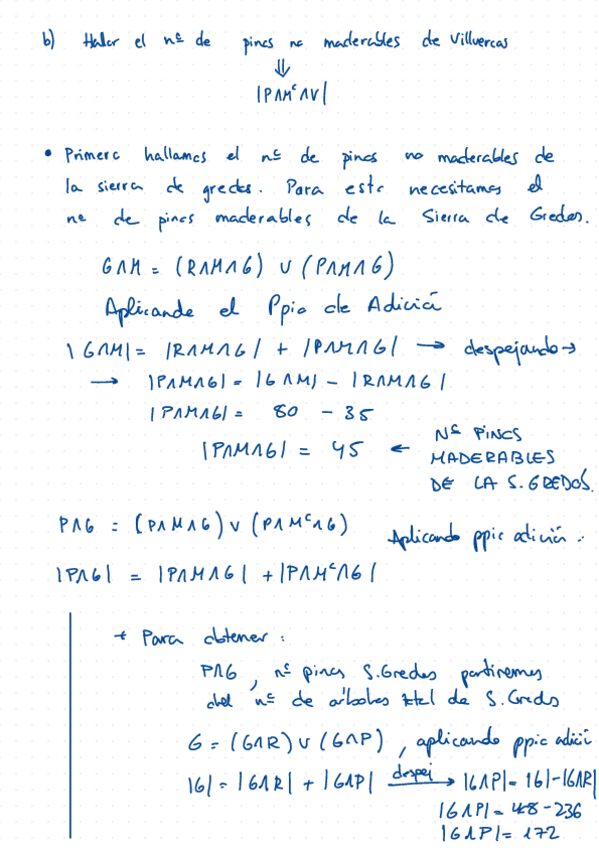 b) Hallar el nº de pinos no maderables de Villuercas
⇓
|P∧Mᶜ∧V|
• Primero hallamos el nº de pinos no maderables de
la sierra de gredos. Para esto necesitamos el
nº de pinos maderables de la Sierra de Gredos.
G∧M = (R∧M∧G) ∪ (P∧M∧G)
Aplicando el Ppio de Adició
|G∧M| = |R∧M∧G| + |P∧M∧G| → despejando →
→ |P∧M∧G| = |G∧M| - |R∧M∧G|
|P∧M∧G| = 80 - 35
|P∧M∧G| = 45 ← Nº PINOS
MADERABLES
DE LA S. GREDOS.
P∧G = (P∧M∧G) ∪ (P∧Mᶜ∧G) Aplicando ppio adición.
|P∧G| = |P∧M∧G| + |P∧Mᶜ∧G|
+ Para obtener :
P∧G , nº pinos S.Gredos partiremos
del nº de árboles ttel de S. Gredos
G = (G∧R) ∪ (G∧P) , aplicando ppio adici
|G| = |G∧R| + |G∧P| despej → |G∧P| = |G|-|G∧R|
|G∧P| = 408-236
|G∧P| = 172